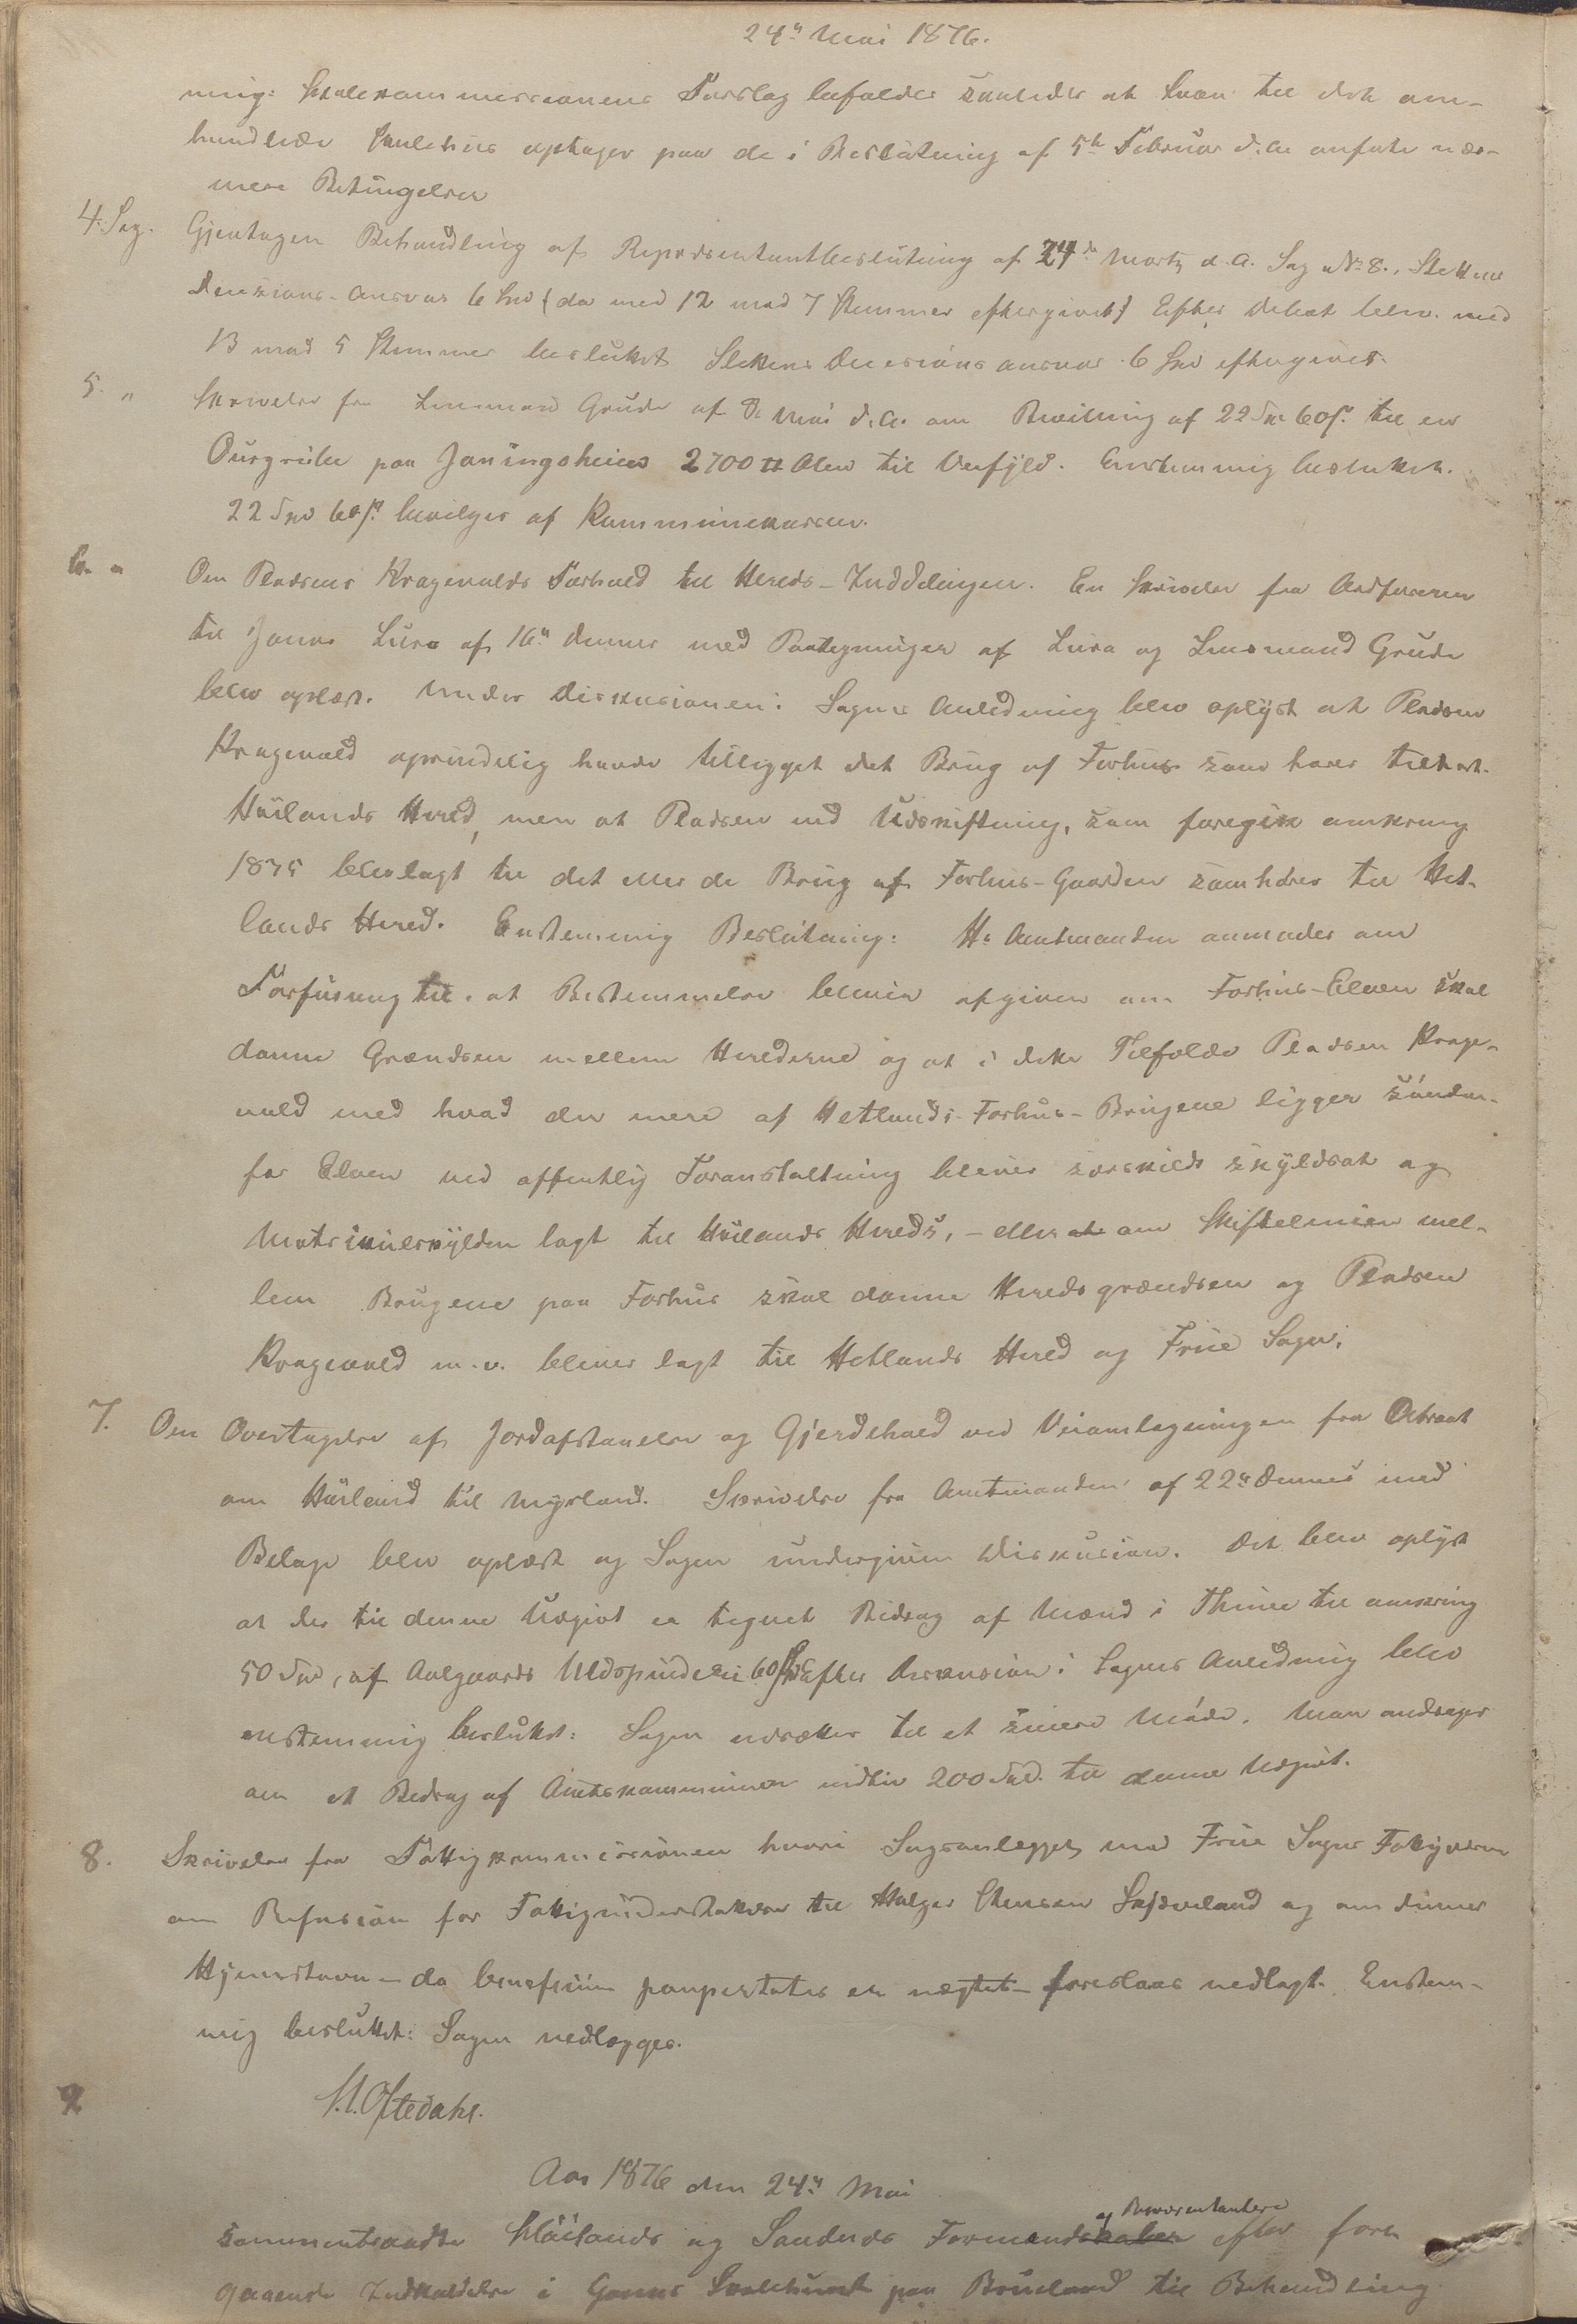 24de Mai 1876.
ning: Skolekommissionens Forslag bifaldes saaledes at Laan til det om-
handlede Skolehus optages paa de i Beslutning af 5te Februar d.A. anførte nær-
mere Betingelser
4. Sag. Gjentagen Behandling af Repræsentantbeslutning af 24de Marts d.A. Sag No 8., Slettens
Decisions-Ansvar 6 Spd (da med 12 mod 7 Stemmer eftergivet) Efter Debat blev med
13 mod 5 Stemmer besluttet Slettens Decisions ansvar 6 Spd eftergives.
5. " Skrivelse fra Lensmand Grude af 8 Mai d.A. om Bevilling af 22 Spd 60 s. til en
Ourgrube paa Joningsheien 2700 Alen til Veifyld. Enstemmig besluttet.
22 Spd 60 s. bevilges af Kommunekassen.
6. " Om Pladsens Kragevolds Forhold til Hereds-Inddelingen. En Skrivelse fra Ordføreren
til Jonas Lura af 16de dennes med Paategninger af Lura og Lensmand Grude
blev oplæst. Under Diskusionen i Sagens Anledning blev oplyst at Pladsen
Kragevold oprindelig havde tilligget det Brug af Forhus som hører til
Høilands Hered, men at Pladsen ved Udskiftning, som foregik omkring
1835 blev lagt til det eller de Brug af Forhus-Gaarden som hører til Het-
lands Hered. Enstemmig Beslutning: Hr Amtmanden anmodes om
Forføining til at Bestemmelse bliver afgiven om Forhus-Elven skal
danne Grændsen mellem Herederne og at i dette Tilfælde Pladsen Krage-
vold med hvad der mere af Hetlands-Forhus-Brugene ligger sønden-
for Elven ved offentlig Foranstaltning bliver særskilt skyldsat og
Matrikulskylden lagt til Høilands Hereds, - eller at om Skiftelinien mel-
lem Brugene paa Forhus skal danne Heredsgrændsen og Pladsen
Kragevold m.v. bliver lagt til Hetlands Hered og Frue Sogn.
7. Om Overtagelse af Jordafstaaelse og Gjerdehold ved Veiomlægningen fra Osteraat
om Høiland til Myrland. Skrivelse fra Amtmanden af 22de dennes med
Bilage blev oplæst og Sagen undergiven Diskusion. Det blev oplyst
at der til denne Udgivt er tegnet Bidrag af Mænd i Thime til omkring
50 Spd, af Aalgaards Uldspinderi 60 Spd Efter Diskusion i Sagens Anledning blev
enstemmig besluttet: Sagen udsættes til et senere Møde. Man andrager
om et Bidrag af Amtskommunen indtil 200 Spd. til denne Udgivt.
8. Skrivelse fra Fattigkommissionen hvori Sagsanlægget mod Frue Sogns Fattigvæsen
om Refusion for Fattigunderstøttelse til Holger Skeveland og om dennes
Hjemstavn - da beneficium paupertatis er nægtet - foreslaaes nedlagt. Enstem-
mig besluttet: Sagen nedlægges.
Oftedahl.
Aar 1876 den 24de Mai
sammentraadte Høilands og Sandnes Formandskaber og Repræsentantere efter fore-
gaaende Indkaldelse i Gands Skolehus paa Brueland til Behandling